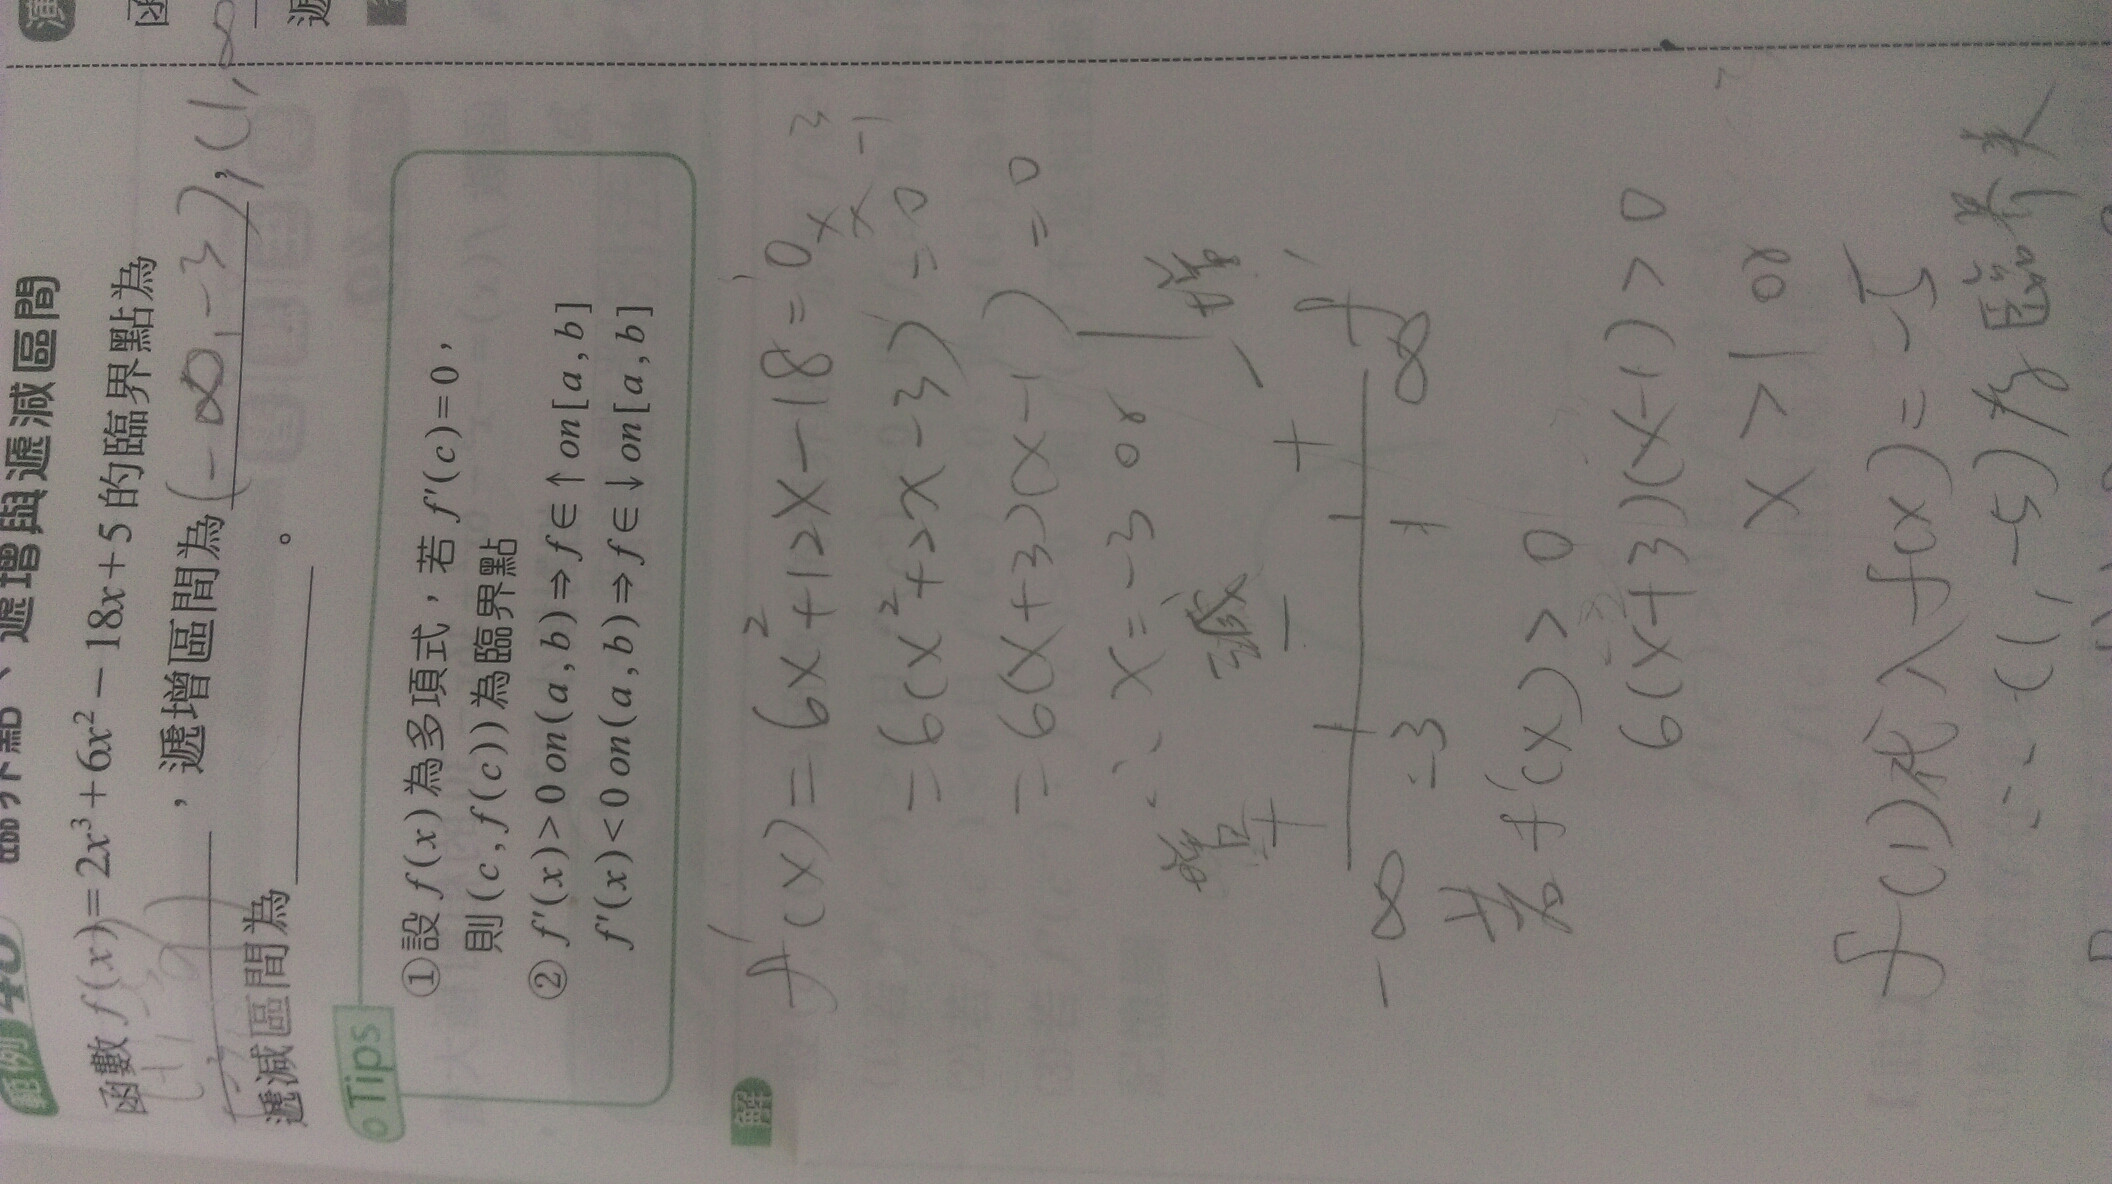 範例 40 臨界點、遞增與遞減區間
函數 f(x)=2x³+6x²−18x+5的臨界點為
，遞增區間為(-∞,-3),(1,∞
遞減區間為 。
Tips
①設 f(x)為多項式，若 f'(c)=0，
則(c,f(c))為臨界點
② f'(x)>0 on(a,b)⇒f∈↑on[a,b]
f'(x)<0 on(a,b)⇒f∈↓on[a,b]
解
f'(x)=6x²+12x-18=0
x 3
x -1
=6(x²+2x-3)=0
=6(x+3)(x-1)=0
∴x=-3 or 1
增 減 增
+ - +
-∞ -3 1 ∞
若f'(x)>0
6(x+3)(x-1)>0
x>1 or
f(1)代入f(x)=-5
∴(1,-5)為臨界